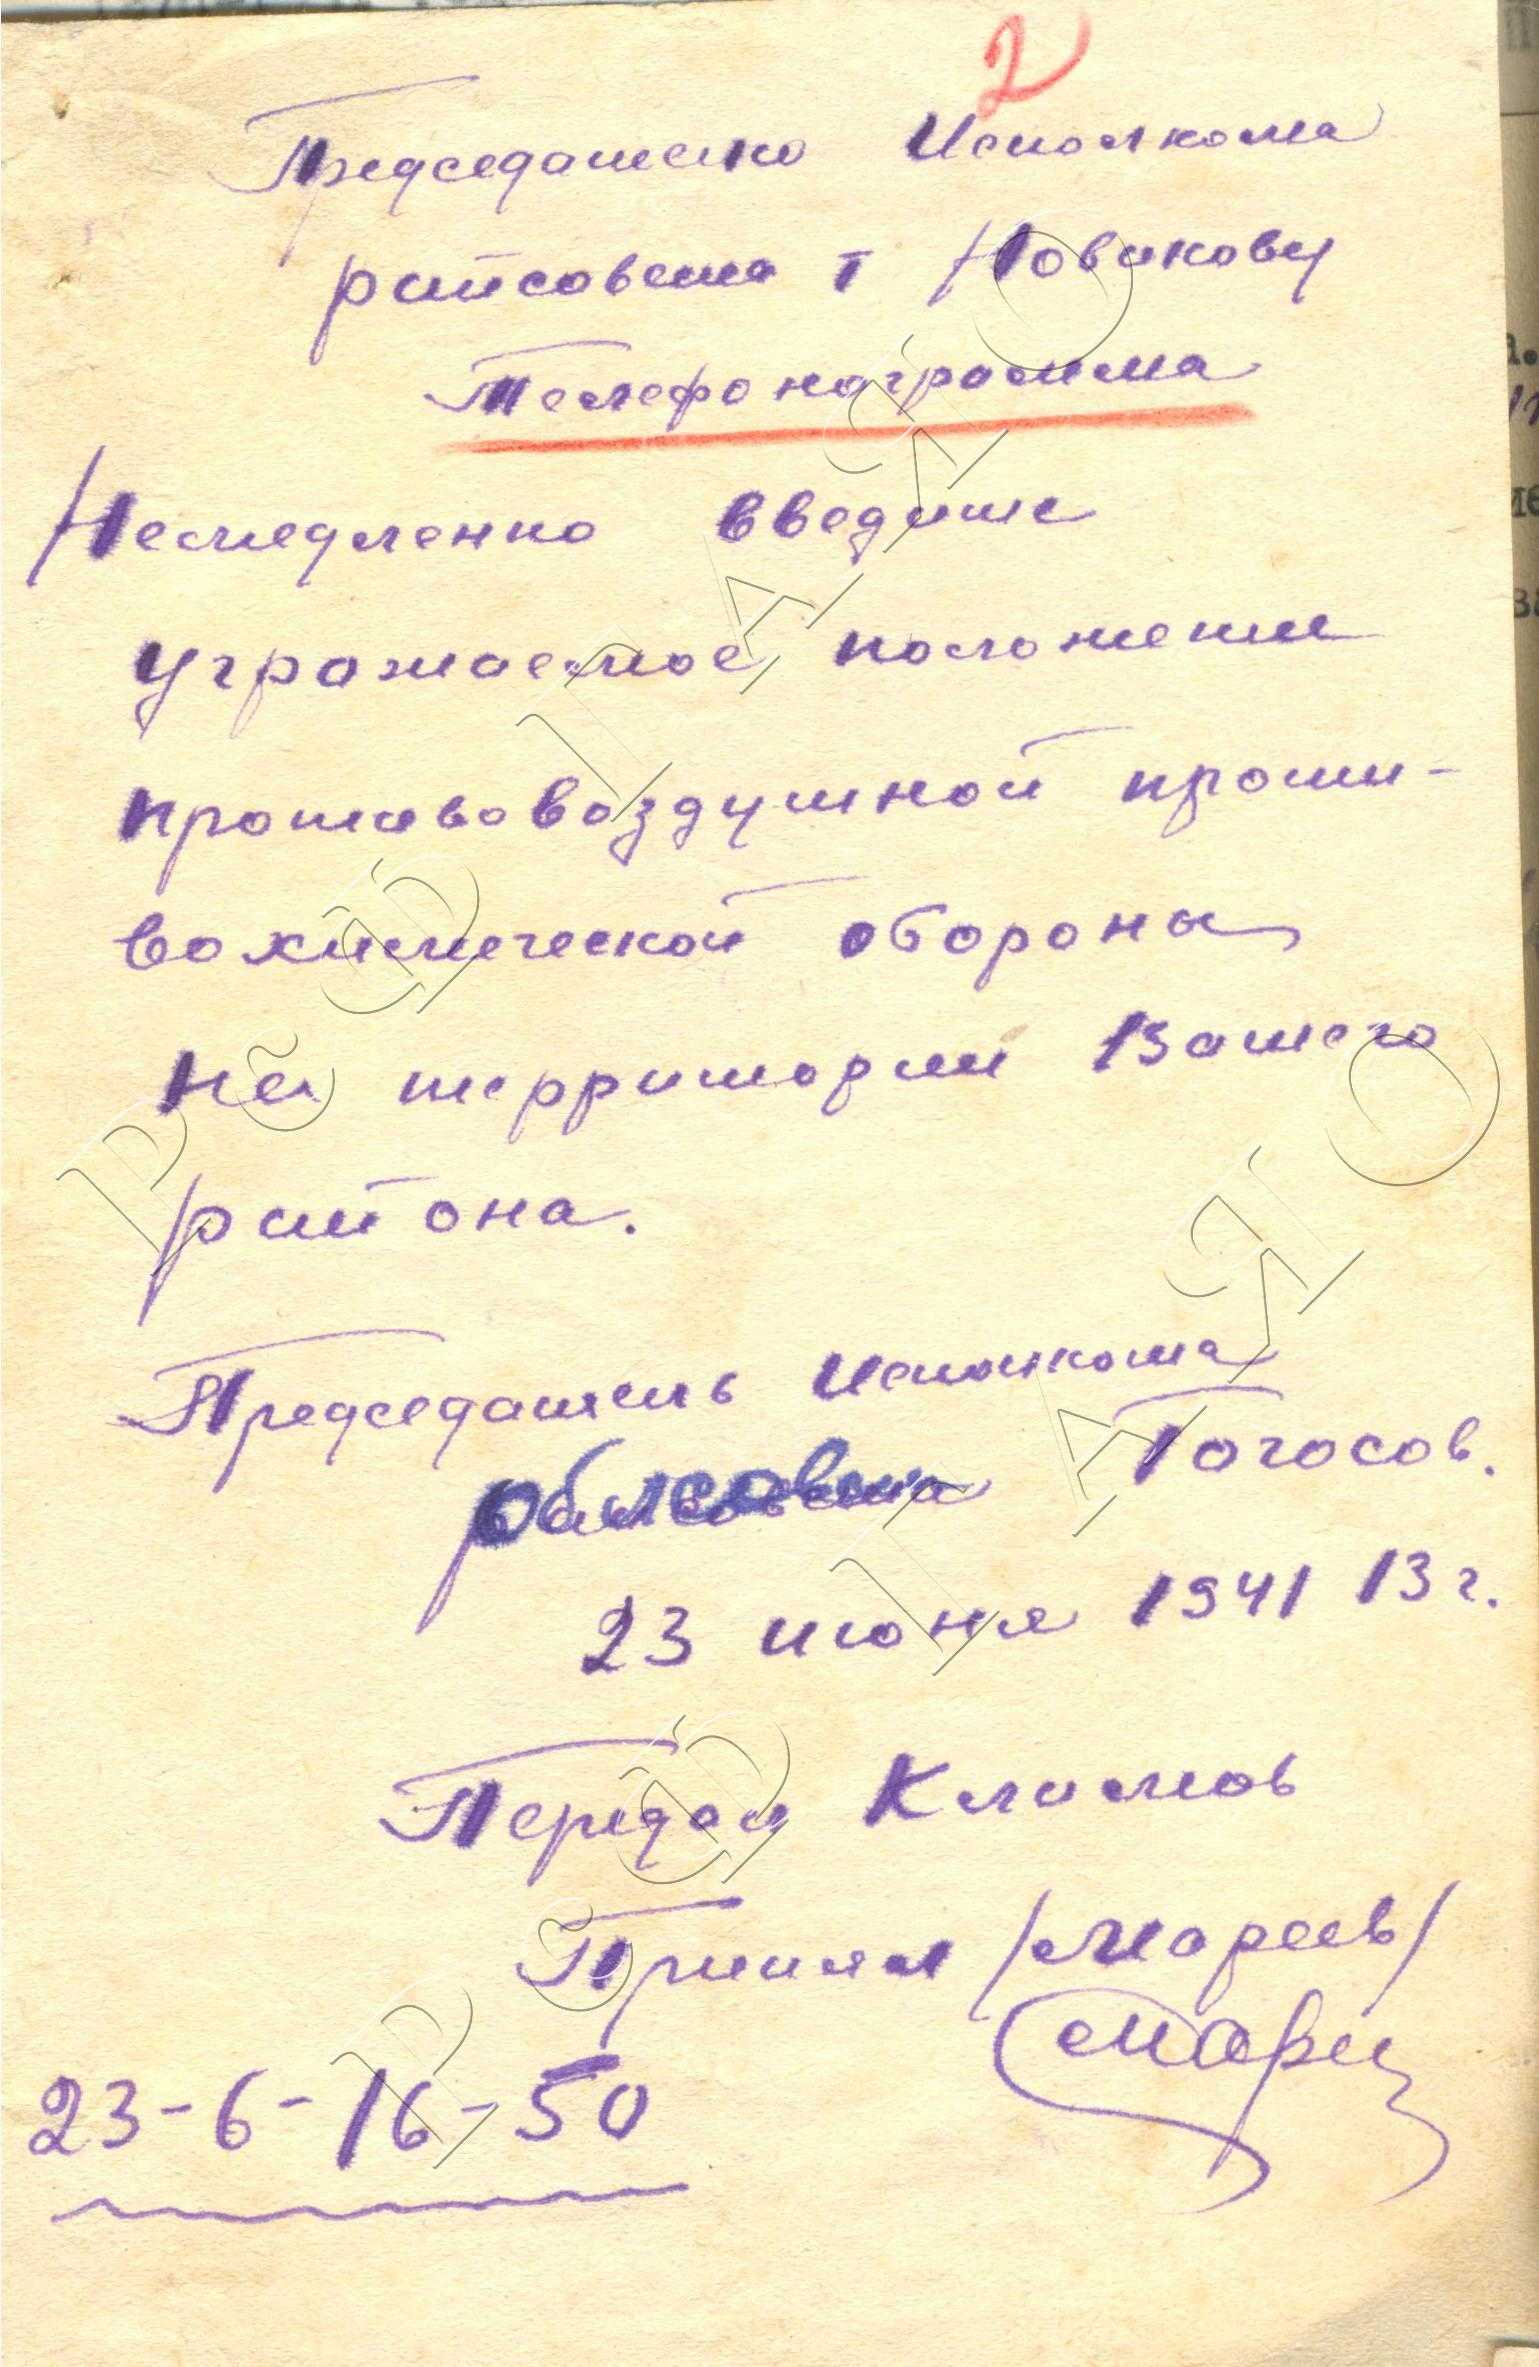 2
Председателю Исполкома
райсовета т Новикову
Телефонаграмма
Немедленно введите
угрожаемое положение
противовоздушной проти-
вохимической обороны
на территории Вашего
района.
Председатель Исполкома
облсовета Гогосов.
23 июня 1941 13 г.
Передал Климов
Принял /Мареев/
23-6-16-50
РсФ ГАЯО
РсФ ГАЯО